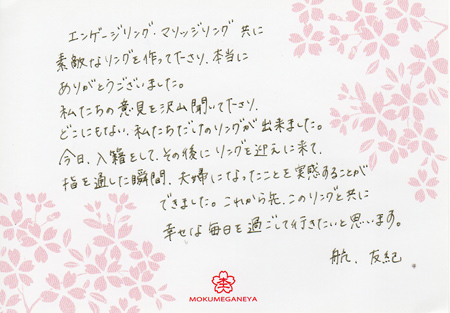 エンゲージリング・マリッジリング共に
素敵なリングを作って下さり、本当に
ありがとうございました。
私たちの意見を沢山聞いて下さり、
どこにもない、私たちだけのリングが出来ました。
今日、入籍をして、その後にリングを迎えに来て、
指を通した瞬間、夫婦になったことを実感することが
できました。これから先、このリングと共に
幸せな毎日を過ごして行きたいと思います。
航、友紀
MOKUMEGANEYA